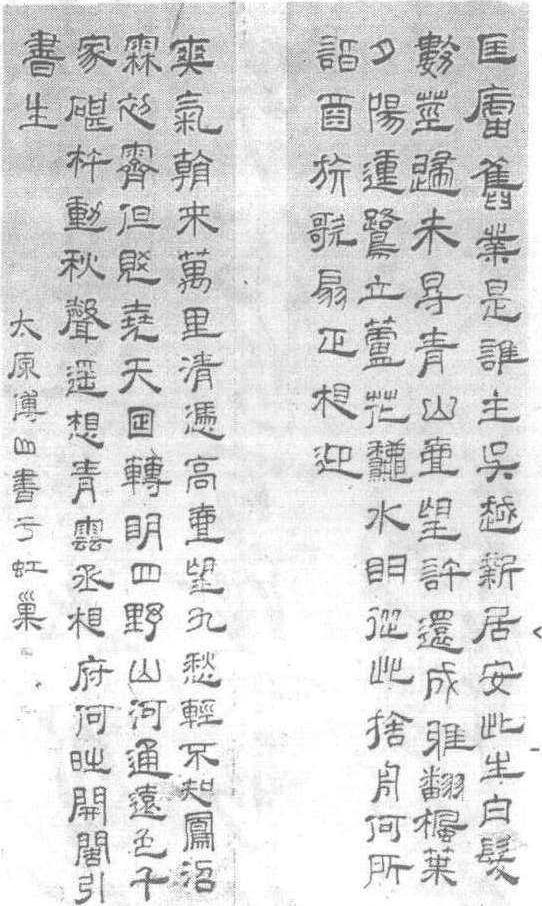 匡廬舊業是誰主吳越新居安此生白髮
數莖歸未得青山壹望許還成雅翻楓葉
夕陽運鷺立蘆花龝水明從此捨舟何所
詣酉旂歌扇正相迎
爽氣朝來萬里清憑高壹望九愁輕不知鳳沼
霖初霽但覺堯天日轉明四野山河通遠色千
家碪杵動秋聲遥想青雲丞相府何時開閣引
書生
太原傅山書于虹巢